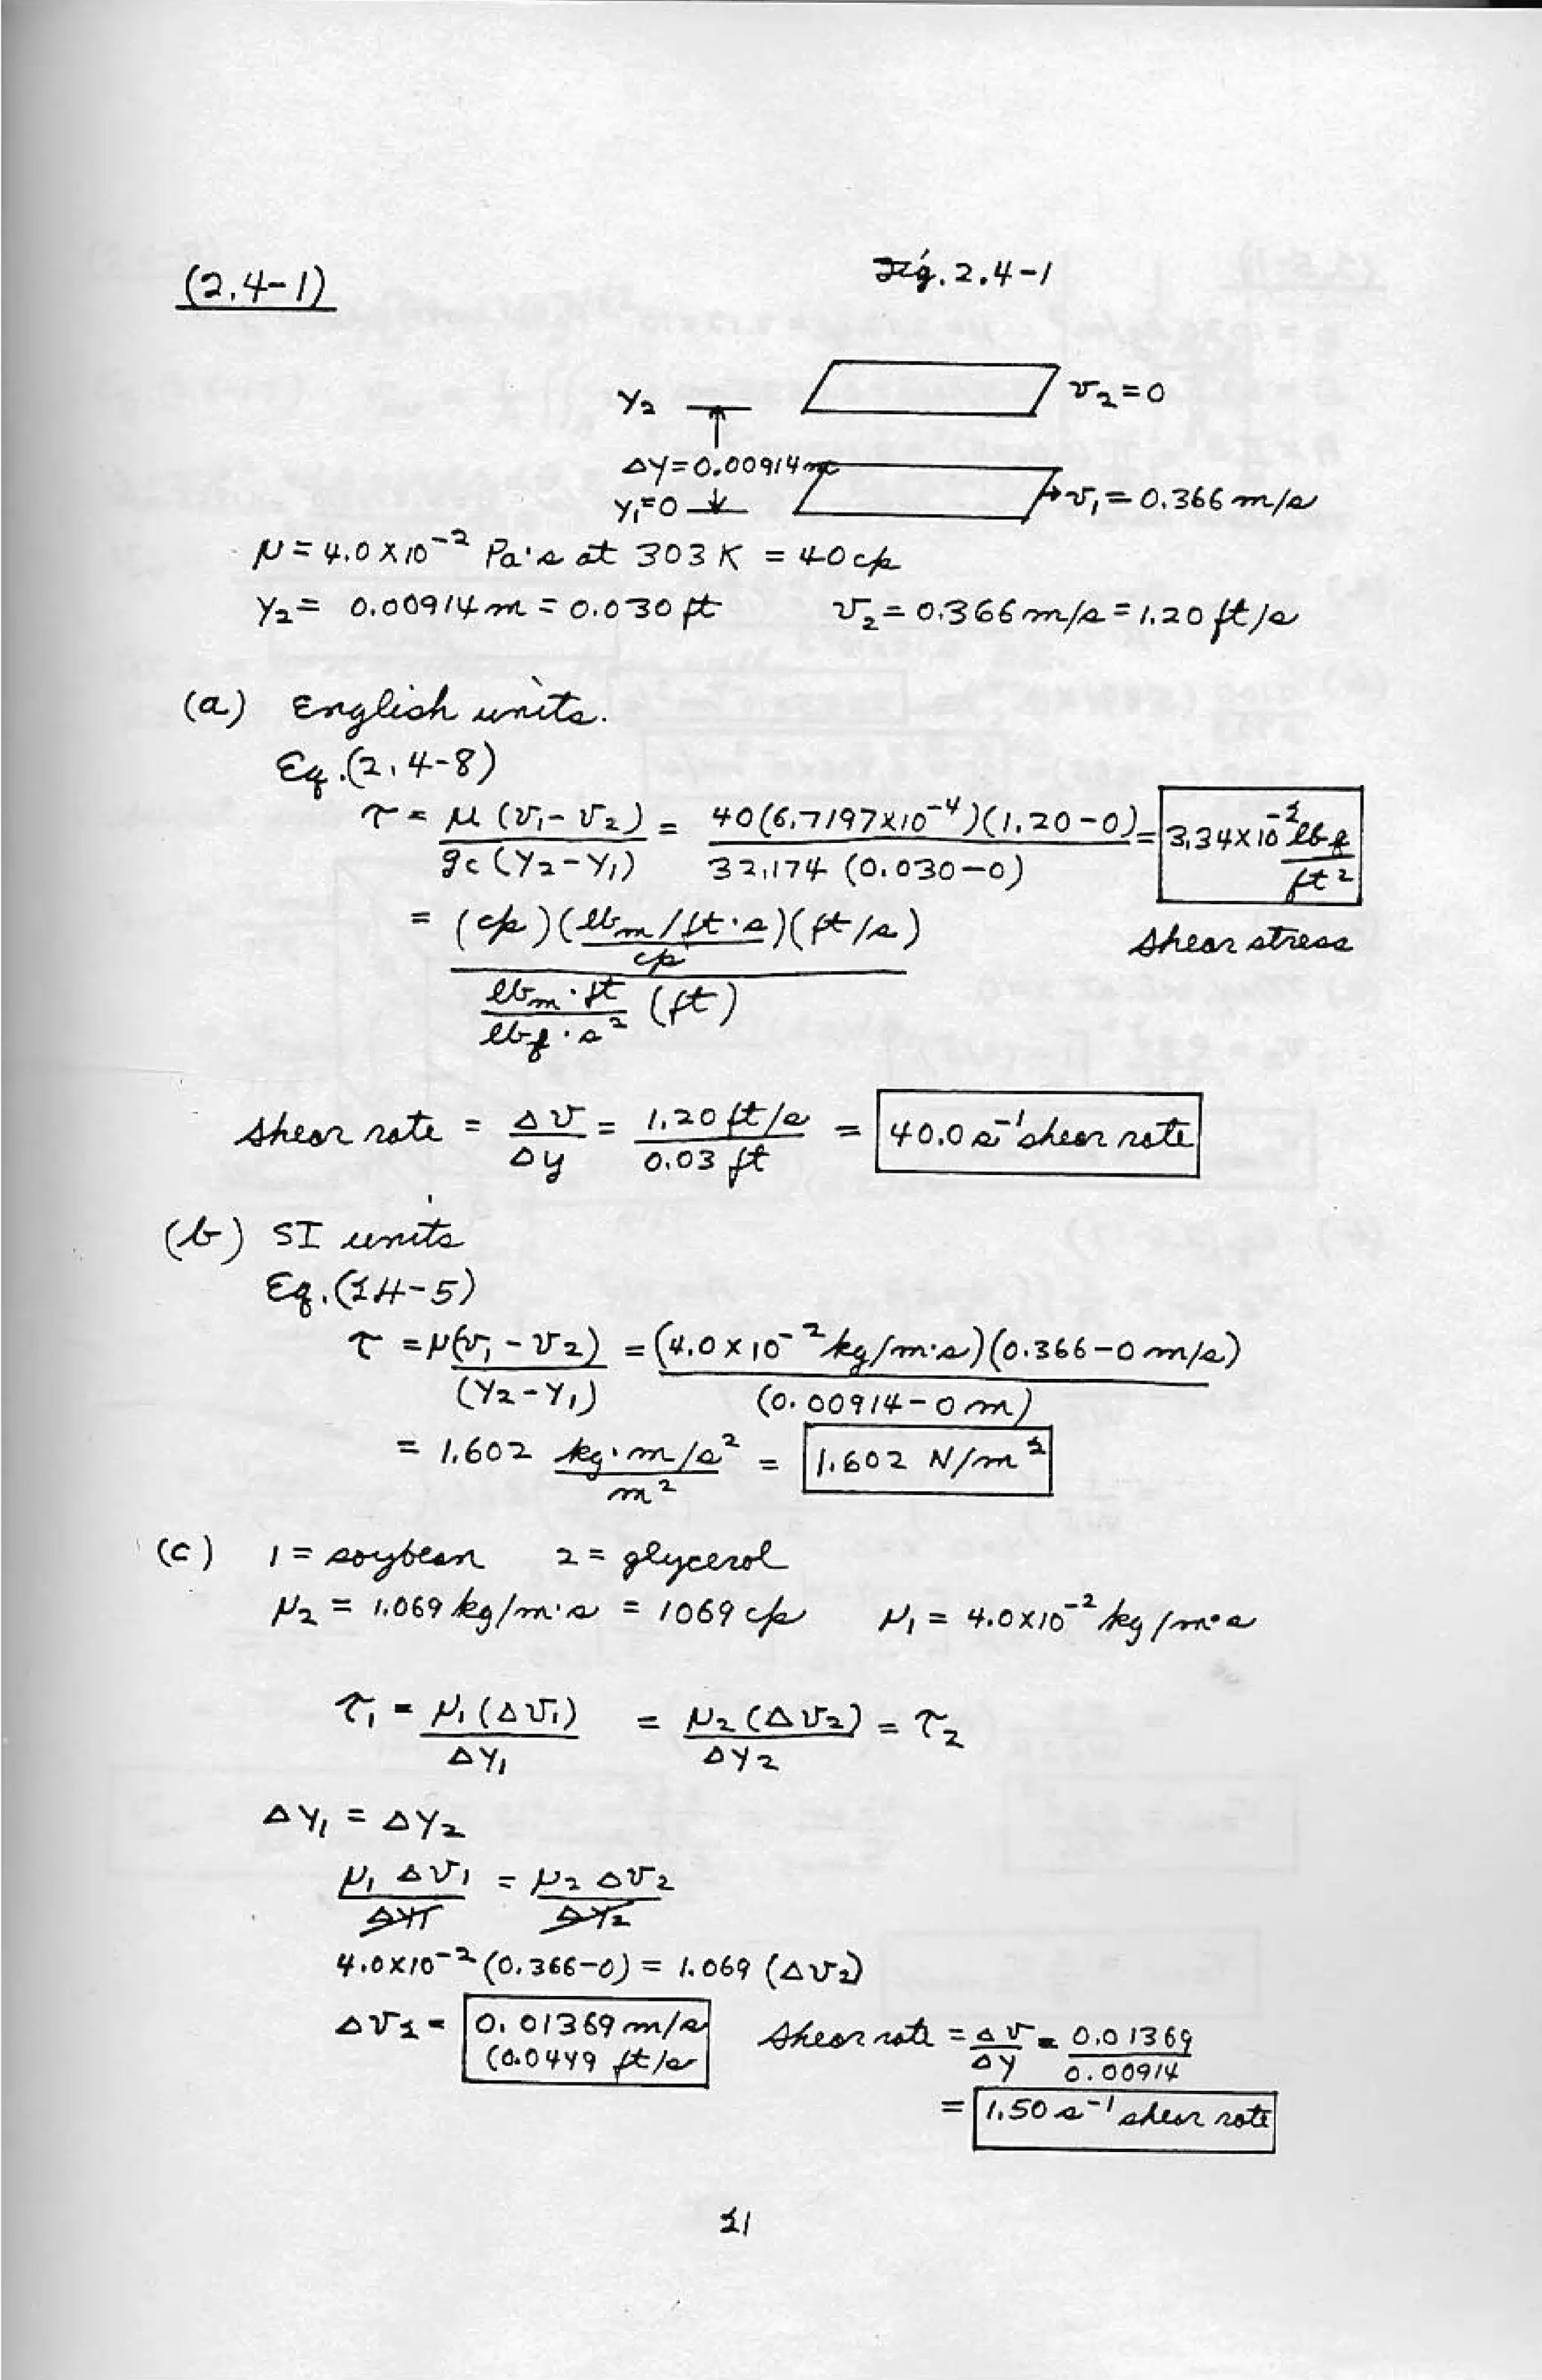 (2.4-1)
Fig. 2.4-1
y₂ v₂=0
Δy=0.00914m
y₁=0 v₁=0.366 m/s
μ = 4.0×10⁻² Pa·s at 303 K = 40 cp
y₂ = 0.00914 m = 0.030 ft v₂ = 0.366 m/s = 1.20 ft/s
(a) English units.
Eq.(2.4-8)
τ = μ(v₁-v₂)/gc(y₂-y₁) = 40(6.7197×10⁻⁴)(1.20-0)/32.174 (0.030-0) = 3.34×10⁻² lbf/ft²
= (cp)(lbm/ft·s/cp)(ft/s)/(lbm·ft/lbf·s²)(ft)
shear stress
shear rate = Δv/Δy = 1.20 ft/s/0.03 ft = 40.0 s⁻¹ shear rate
(b) SI units
Eq.(2.4-5)
τ = μ(v₁-v₂)/(y₂-y₁) = (4.0×10⁻² kg/m·s)(0.366-0 m/s)/(0.00914-0 m)
= 1.602 kg·m/s²/m² = 1.602 N/m²
(c) 1 = soybean 2 = glycerol
μ₂ = 1.069 kg/m·s = 1069 cp μ₁ = 4.0×10⁻² kg/m·s
τ₁ = μ₁(Δv₁)/Δy₁ = μ₂(Δv₂)/Δy₂ = τ₂
Δy₁ = Δy₂
μ₁ Δv₁/Δy₁ = μ₂ Δv₂/Δy₂
4.0×10⁻²(0.366-0) = 1.069 (Δv₂)
Δv₂ = 0.01369 m/s
(0.0449 ft/s
shear rate = Δv/Δy = 0.01369/0.00914
= 1.50 s⁻¹ shear rate
21